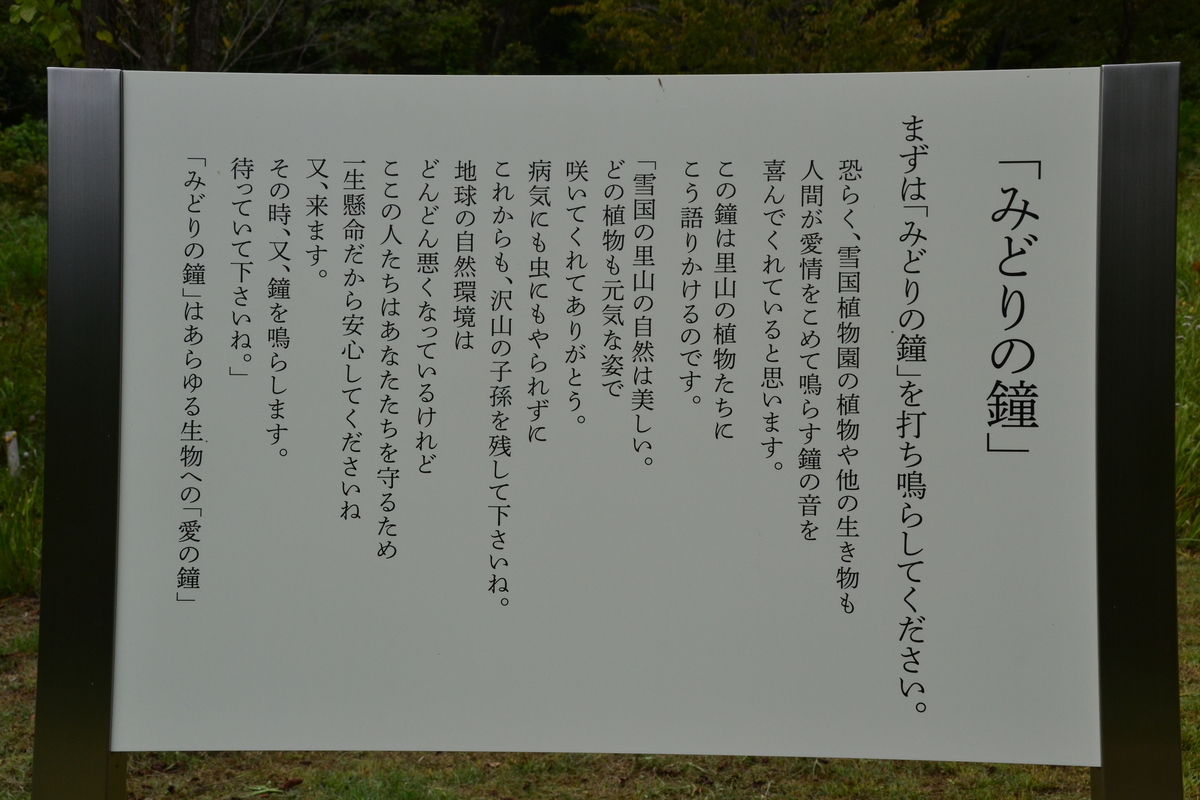 「みどりの鐘」
まずは「みどりの鐘」を打ち鳴らしてください。
恐らく、雪国植物園の植物や他の生き物も
人間が愛情をこめて鳴らす鐘の音を
喜んでくれていると思います。
この鐘は里山の植物たちに
こう語りかけるのです。
「雪国の里山の自然は美しい。
どの植物も元気な姿で
咲いてくれてありがとう。
病気にも虫にもやられずに
これからも、沢山の子孫を残して下さいね。
地球の自然環境は
どんどん悪くなっているけれど
ここの人たちはあなたたちを守るため
一生懸命だから安心してくださいね
又、来ます。
その時、又、鐘を鳴らします。
待っていて下さいね。」
「みどりの鐘」はあらゆる生物への「愛の鐘」